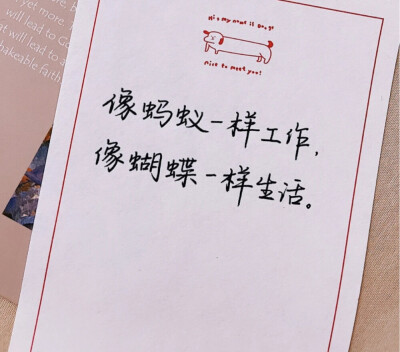 yet more. B
will lead to Go
will lead to a
hakeable faith
Hi's my name is Dog?
Nice to meet you!
像蚂蚁一样工作，
像蝴蝶一样生活。